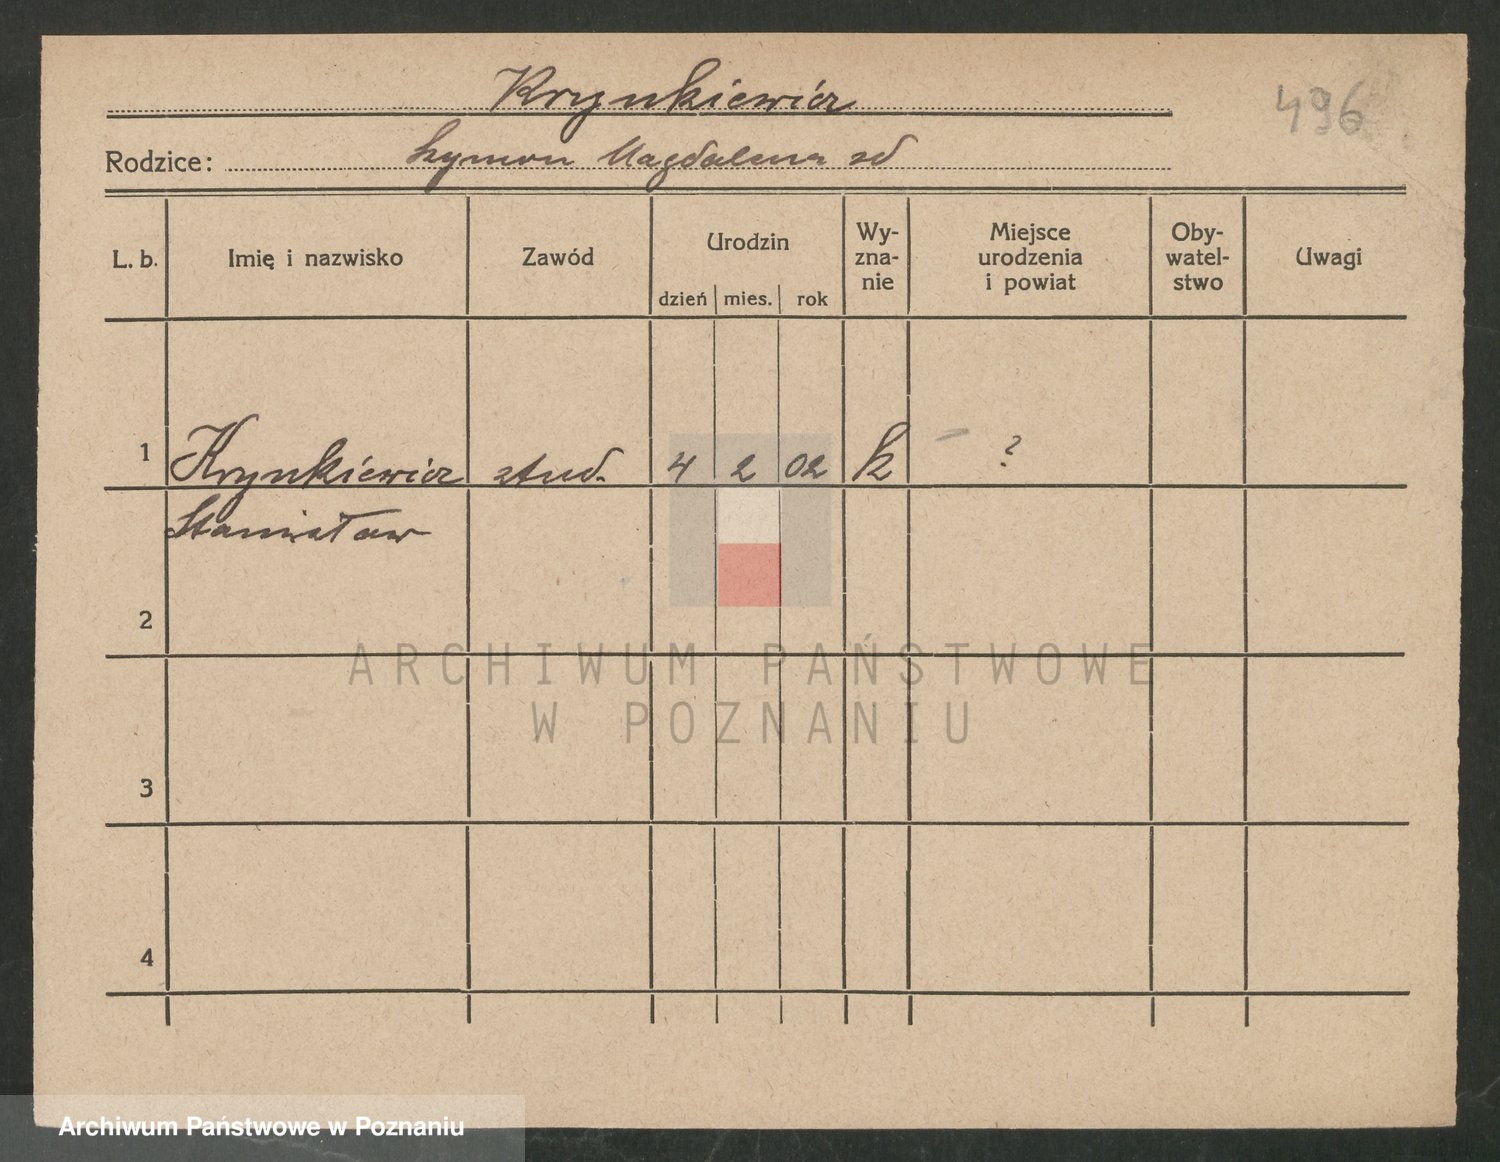 Krynkiewicz
496
Rodzice: Szymon Magdalena zd
L. b. Imię i nazwisko Zawód Urodzin dzień mies. rok Wy-zna-nie Miejsce urodzenia i powiat Oby-watel-stwo Uwagi
1 Krynkiewicz stud. 4 2 02 k ?
Stanisław
2
3
4
ARCHIWUM PAŃSTWOWE
W POZNANIU
Archiwum Państwowe w Poznaniu